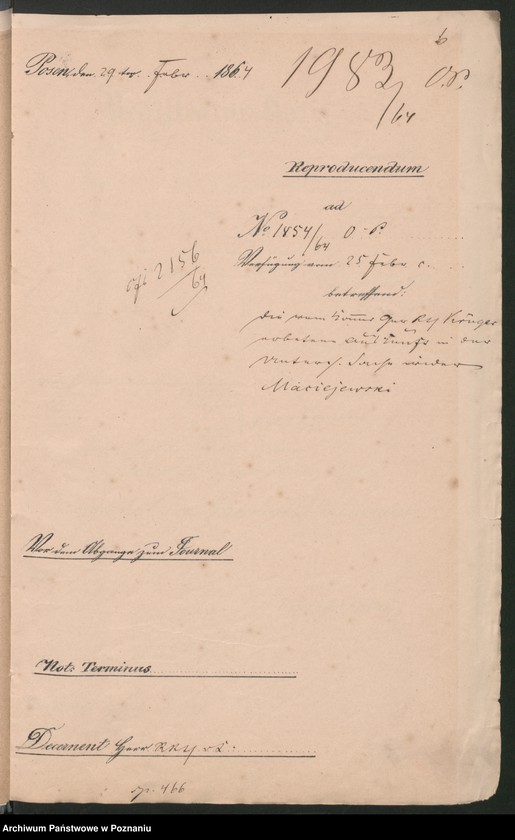 6
Posen, den 29 ten Febr. 1864
1983/64 O.P.
Reproducendum
ad
No 1454/64 O.P.
Verfügung vom 25 Febr. c.
betreffend:
2156/64
die vom Kammer Ger. Krüger
erbetene Auskunft in der
Unters. Sache wider
Maciejewski
Vor dem Abgange zum Journal
Not: Terminus
Decernent Herr
466
Archiwum Państwowe w Poznaniu